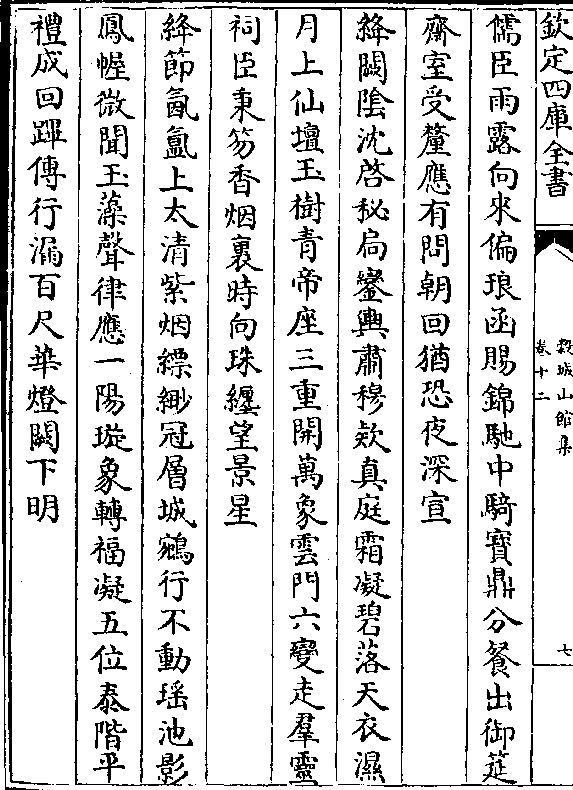 欽定四庫全書
穀城山館集
卷十二
七
儒臣雨露向來偏琅函賜錦馳中騎寶鼎分餐出御筵
齋室受釐應有問朝回猶恐夜深宣
絳闕陰沈啓秘扃鑾輿肅穆欵真庭霜凝碧落天衣濕
月上仙壇玉樹青帝座三重開萬象雲門六變走羣靈
祠臣秉笏香烟裏時向珠纒望景星
絳節氤氳上太清紫烟縹緲冠層城鵷行不動瑶池影
鳳幄微聞玉藻聲律應一陽璇象轉福凝五位泰階平
禮成回蹕傳行漏百尺華燈闕下明